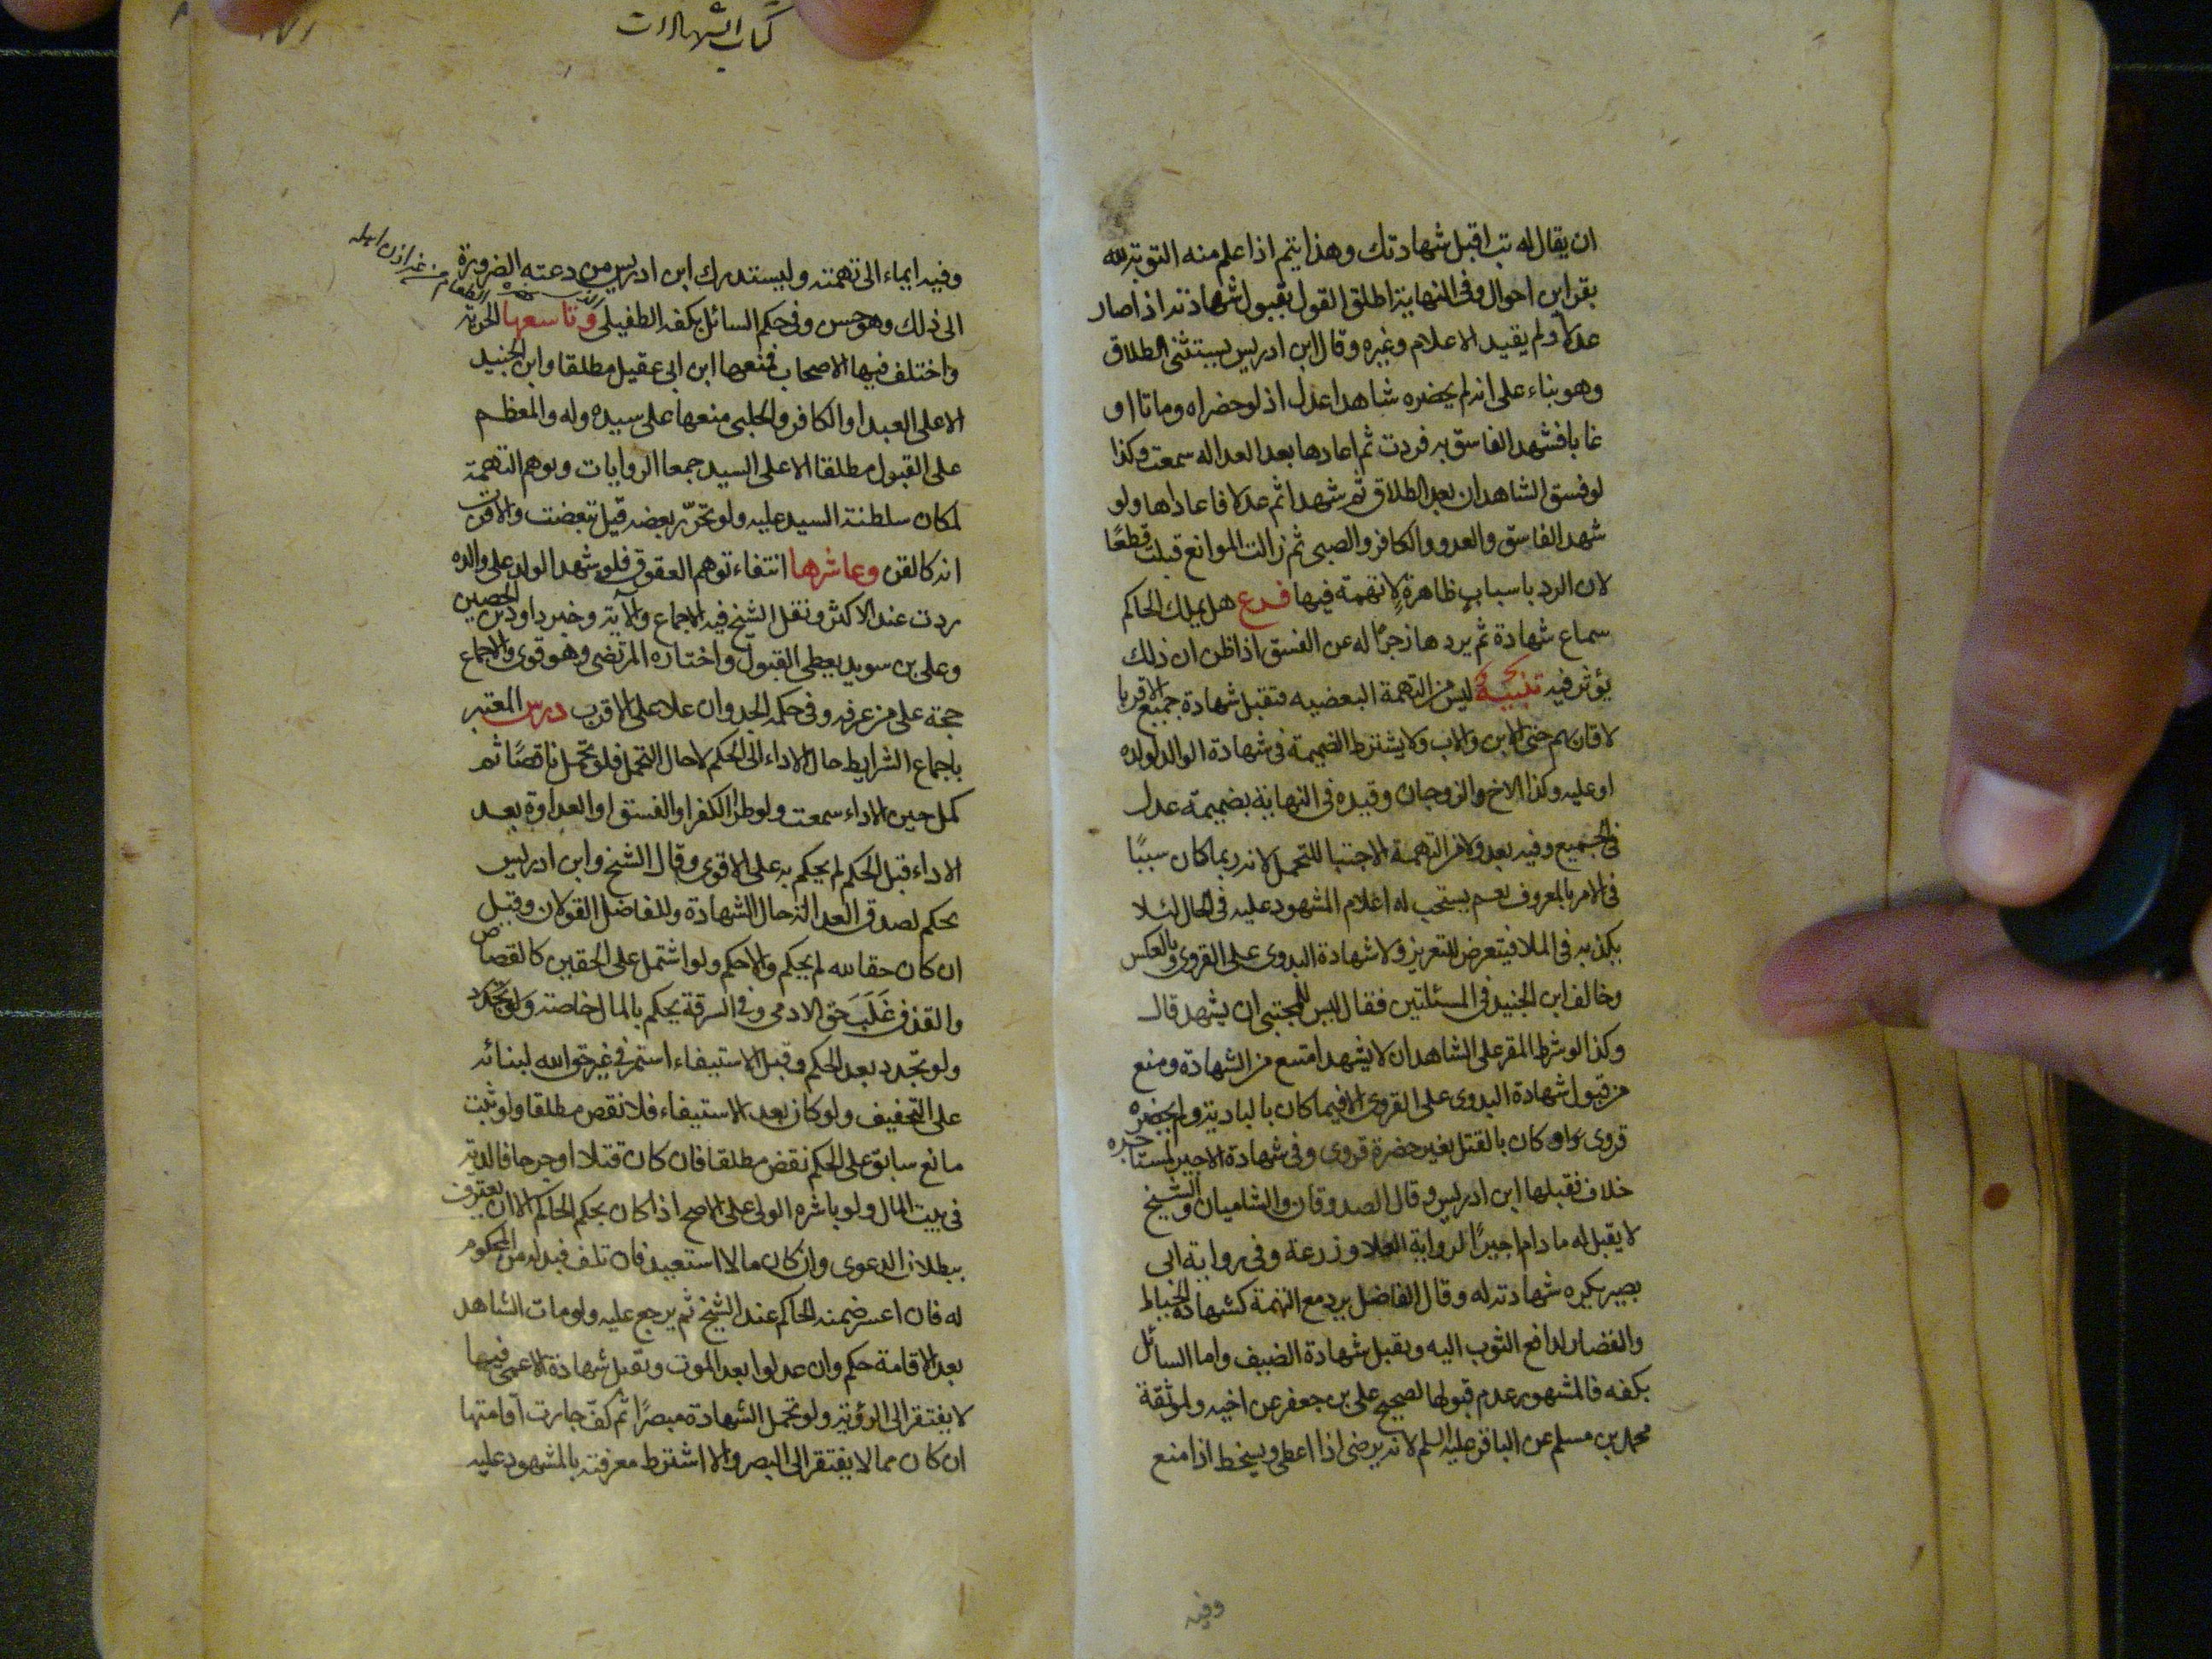 ان يقال له تب اقبل شهادتك وهذا يتم اذا علم منه التوبة لله
بقراين احوال وفي النهاية اطلق القول بقبول شهادته اذا صار
عدلا ولم يقيد الاعلام وغيره وقال ابن ادريس يستثنى الطلاق
وهو بناء على انه لم يحضره شاهدا عدل اذ لو حضراه وماتا او
غابا فشهد الفاسق به فردت ثم اعادها بعد العداله سمعت وكذا
لو فسق الشاهدان بعد الطلاق ثم شهدا ثم عدلا فاعاداها ولو
شهد الفاسق والعدو والكافر والصبى ثم زالت الموانع قبلت قطعًا
لان الرد باسباب ظاهرة لا تهمة فيها فرع هل يملك الحاكم
سماع شهادة ثم يردها زجرًا له عن الفسق اذا ظن ان ذلك
يؤثر فيه تنبيه ليس من التهمة البعضيه فتقبل شهادة جميع الاقربا
لاقاربهم حتى الابن والاب ولا يشترط الضميمة في شهادة الوالد لولده
او عليه وكذا الاخ والزوجان وقيده في النهاية بضميمة عدل
في الجميع وفيه بعد ولا من التهمة الاجتبا للتحمل لانه ربما كان سببًا
في الامر بالمعروف نعم يستحب له اعلام المشهود عليه في الحال لئلا
يكذبه في الملا فيتعرض للتعزير ولا شهادة البدوى على القروى وبالعكس
وخالف ابن الجنيد في المسئلتين فقال ليس للمجتبى ان يشهد قال
وكذا لو شرط المقر على الشاهد ان لا يشهد امتنع من الشهادة ومنع
من قبول شهادة البدوى على القروى الا فيما كان بالبادية ولم يحضره
قروى او كان بالقتل بغير حضرة قروى وفي شهادة الاجير لمستاجره
خلاف فقبلها ابن ادريس وقال الصدوقان والشاميان والشيخ
لا يقبل له ما دام اجيرًا لرواية العلا وزرعة وفي رواية ابى
بصير يكره شهادته له وقال الفاضل يرد مع التهمة كشهادة الخياط
والقصار لدافع الثوب اليه وتقبل شهادة الضيف واما السائل
بكفه فالمشهور عدم قبولها لصحيح على بن جعفر عن اخيه ولموثقة
محمد بن مسلم عن الباقر عليه السلم لانه يرضى اذا اعطى ويسخط اذا منع
وفيه
كتاب الشهادات
وفيه ايماء الى تهمته وليستدرك ابن ادريس من دعته الضرورة
من غير اذن اهله
الى ذلك وهو حسن وفي حكم السائل بكفه الطفيلى وتاسعها الحرية
الطعام
واختلف فيها الاصحاب فمنعها ابن ابى عقيل مطلقا وابن الجنيد
الا على العبد او الكافر والحلبى منعها على سيده وله والمعظم
على القبول مطلقا الا على السيد جمعا الروايات وبوهم التهمة
لمكان سلطنة السيد عليه ولو تحرّر بعضه قيل تبعضت والاقرب
انه كالقن وعاشرها انتفاء توهم العقوق فلو شهد الولد على والده
ردت عند الاكثر ونقل الشيخ فيه الاجماع والآية وخبر داود بن الحصين
وعلى بن سويد يعطى القبول واختاره المرتضى وهو قوى والاجماع
حجة على من عرفه وفي حكمه الجد وان علا على الاقرب درس المعتبر
باجماع الشرايط حال الاداء الى الحكم لا حال التحمل فلو تحمل ناقصًا ثم
كمل حين الاداء سمعت ولو طرا الكفر او الفسق او العداوة بعد
الاداء قبل الحكم لم يحكم به على الاقوى وقال الشيخ وابن ادريس
يحكم لصدق العدالة حال الشهادة وللفاضل القولان وقيل
ان كان حقا لله لم يحكم والا حكم ولو اشتمل على الحقين كالقصاص
والقذف غَلَبَ حَق الادمى وفي السرقة يحكم بالمال خاصة ولو تجدد
ولو تجدد بعد الحكم وقبل الاستيفاء استمر في غير حق الله لبنائه
على التخفيف ولو كان بعد الاستيفاء فلا نقض مطلقا ولو ثبت
مانع سابق على الحكم نقض مطلقا فان كان قتلا او جرحا فالدية
في بيت المال ولو باشره الولى على الاصح اذا كان بحكم الحاكم الا ان يعترف
ببطلان الدعوى وان كان مالا استعيد فان تلف فبدله من المحكوم
له فان اعسر ضمنه الحاكم عند الشيخ ثم يرجع عليه ولو مات الشاهد
بعد الاقامة حكم وان عدلوا بعد الموت وتقبل شهادة الاعمى فيما
لا يفتقر الى الرؤية ولو تحمل الشهادة مبصرًا ثم كفّ جازت اقامتها
ان كان مما لا يفتقر الى البصر والا اشترط معرفته بالمشهود عليه